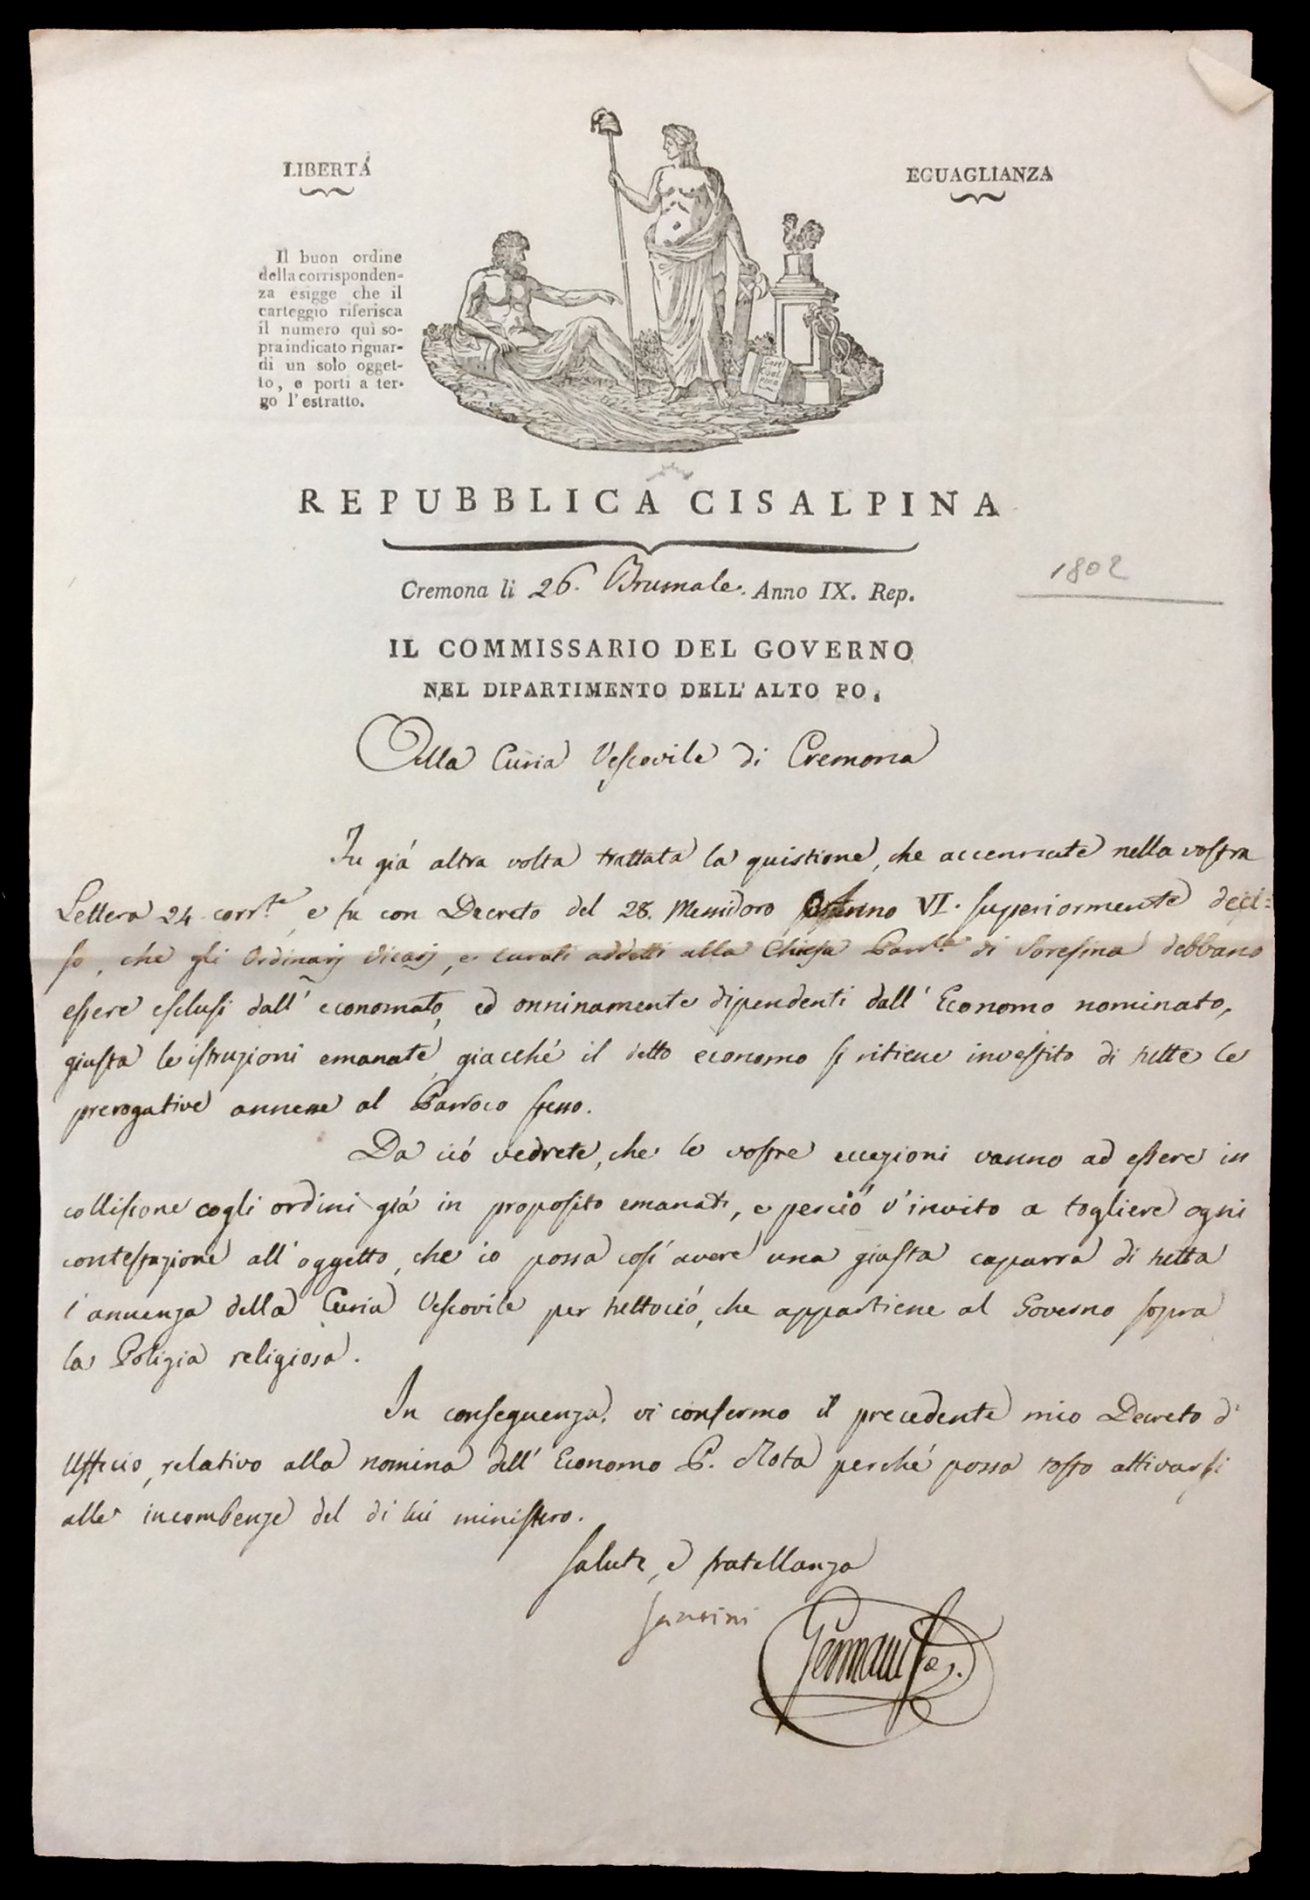 LIBERTÁ
EGUAGLIANZA
Il buon ordine
della corrisponden-
za esigge che il
carteggio riferisca
il numero quì so-
pra indicato riguar-
di un solo ogget-
to, e porti a ter-
go l'estratto.
REPUBBLICA CISALPINA
Cremona li 26. Brumale. Anno IX. Rep.
1802
IL COMMISSARIO DEL GOVERNO
NEL DIPARTIMENTO DELL'ALTO PO.
Alla Curia Vescovile di Cremona
Fu giá altra volta trattata la quistione, che accennate nella vostra
Lettera 24 corr.te, e fu con Decreto del 28. Messidoro Anno VI. superiormente deci=
so, che gli Ordinarj Vicarj, e Curati addetti alla Chiesa Parr.le di Soresina debbano
essere esclusi dall'economato, ed onninamente dipendenti dall'Economo nominato,
giusta le istruzioni emanate, giacché il detto economo si ritiene investito di tutte le
prerogative annesse al Parroco stesso.
Da ció vedrete, che le vostre eccezioni vanno ad essere in
collisione cogli ordini giá in proposito emanati, e perció v'invito a togliere ogni
contestazione all'oggetto, che io possa cosí avere una giusta caparra di tutta
l'annuenza della Curia Vescovile per tuttoció, che appartiene al Governo sopra
la Polizia religiosa.
In conseguenza vi confermo il precedente mio Decreto d'
Ufficio, relativo alla nomina dell'Economo P. Rota perché possa tosto attivarsi
alle incombenze del di lui ministero.
Salute, e fratellanza